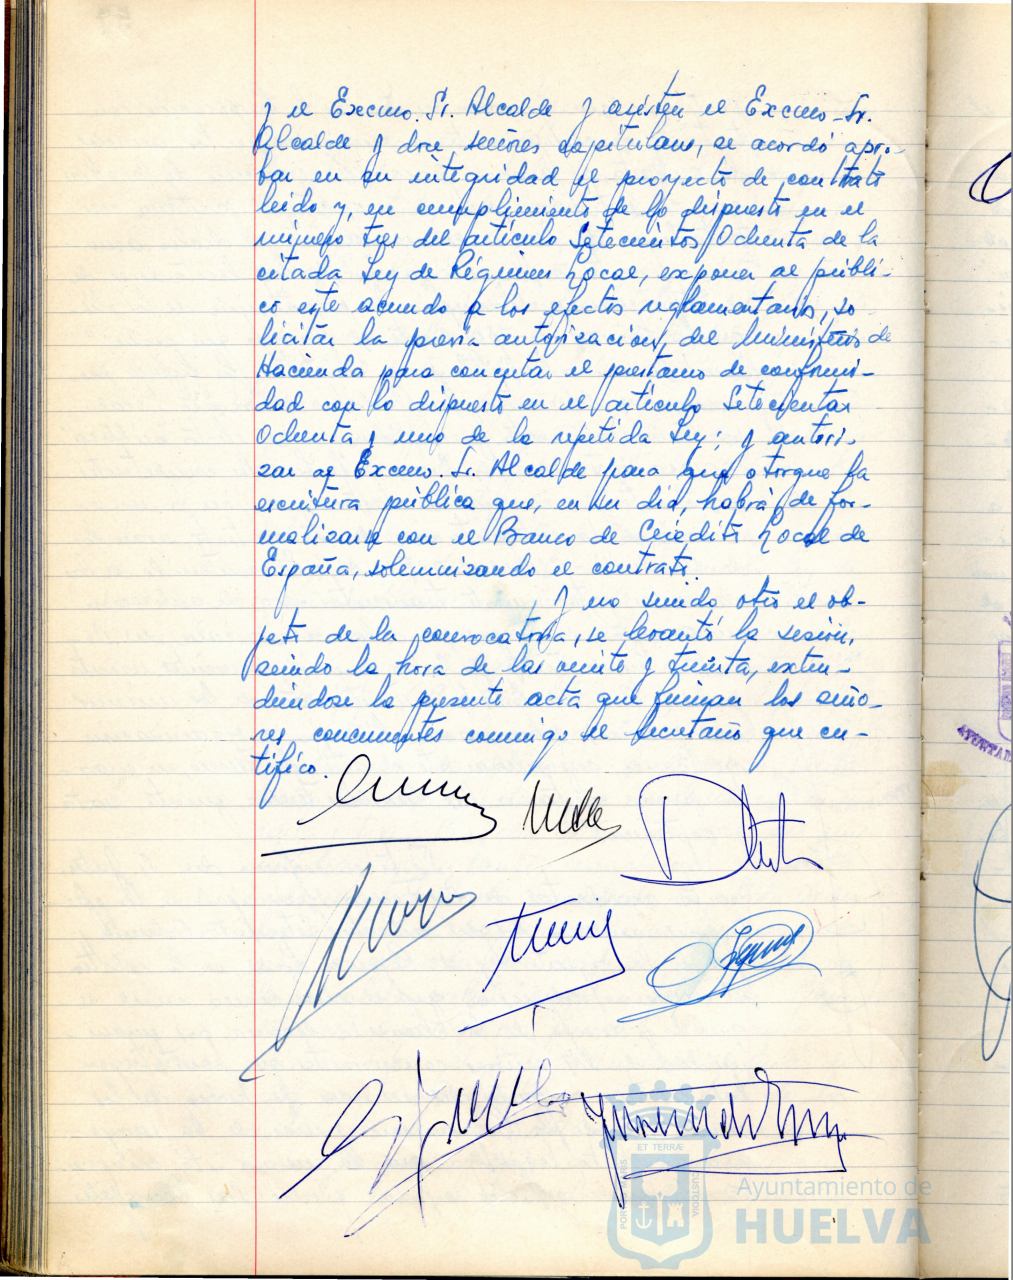 y el Excmo. Sr. Alcalde y asisten el Excmo. Sr.
Alcalde y doce señores capitulares, se acordó apro-
bar en su integridad el proyecto de contrato
leido y, en cumplimiento de lo dispuesto en el
número tres del artículo Setecientos Ochenta de la
citada Ley de Régimen Local, exponer al públi-
co este acuerdo a los efectos reglamentarios, so
licitar la previa autorización, del Ministerio de
Hacienda para concertar el prestamo de conformi-
dad con lo dispuesto en el artículo Setecientos
Ochenta y uno de la repetida Ley; y autori-
zar al Excmo. Sr. Alcalde para que otorgue la
escritura pública que, en su dia, habrá de for-
malizarse con el Banco de Crédito Local de
España, solemnizando el contrato.
Y no siendo otro el ob-
jeto de la convocatoria, se levantó la sesión,
siendo la hora de las veinte y treinta, exten-
diéndose la presente acta que firman los seño-
res, concurrentes conmigo el Secretario que cer-
tifico.
ET TERRÆ
CUSTODIA
Ayuntamiento de
HUELVA